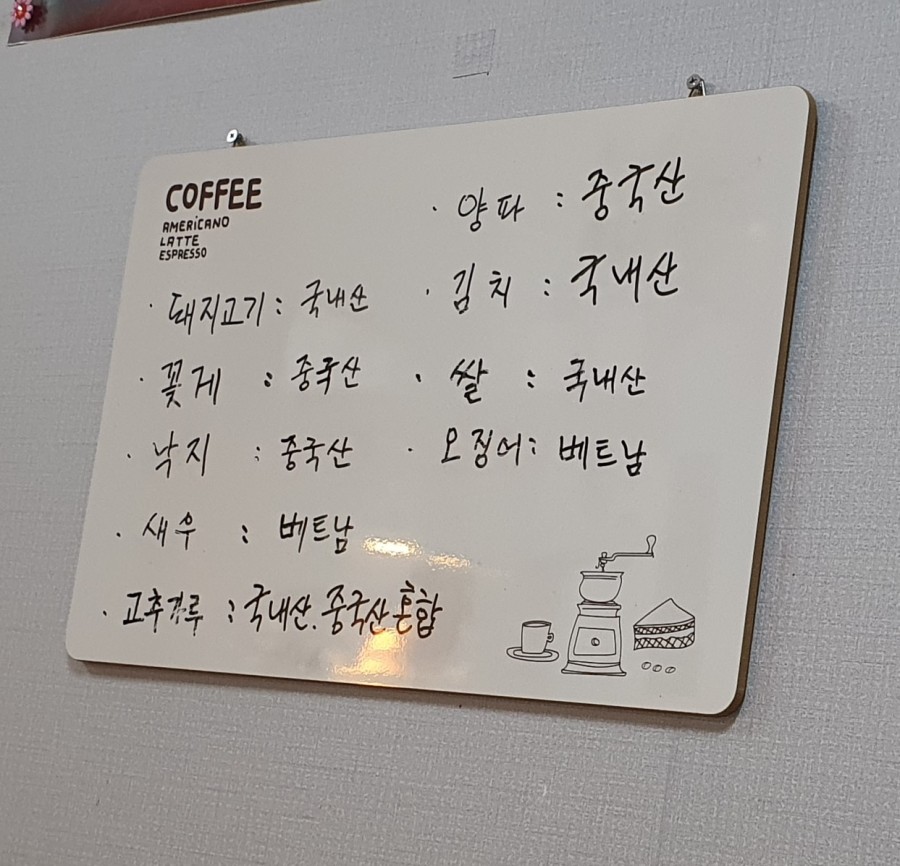 COFFEE
AMERICANO
LATTE
ESPRESSO
· 돼지고기 : 국내산
· 꽃게 : 중국산
· 낙지 : 중국산
· 새우 : 베트남
· 고추가루 : 국내산.중국산혼합
· 양파 : 중국산
· 김치 : 국내산
· 쌀 : 국내산
· 오징어 : 베트남